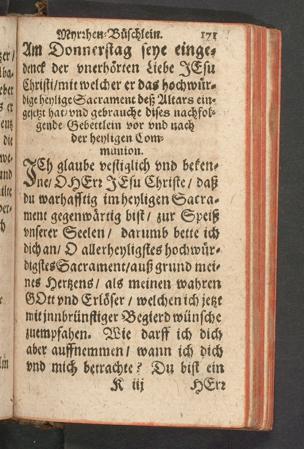 Myrrhen-Büschlein. 171
Am Donnerstag seye einge-
denck der vnerhörten Liebe JEsu
Christi/mit welcher er das hochwür-
dige heylige Sacrament deß Altars ein-
gesetzt hat/vnd gebrauche dises nachfol-
gende Gebettlein vor vnd nach
der heyligen Com-
munion.
JCh glaube vestiglich vnd beken-
ne/ O HErr JEsu Christe/ daß
du warhafftig im heyligen Sacra-
ment gegenwärtig bist/ zur Speiß
vnserer Seelen/ darumb bette ich
dich an/ O allerheyligstes hochwür-
digstes Sacrament/auß grund mei-
nes Hertzens/ als meinen wahren
GOtt vnd Erlöser/ welchen ich jetzt
mit jnnbrünstiger Begierd wünsche
zuempfahen. Wie darff ich dich
aber auffnemmen/ wann ich dich
vnd mich betrachte? Du bist ein
K iij HErr